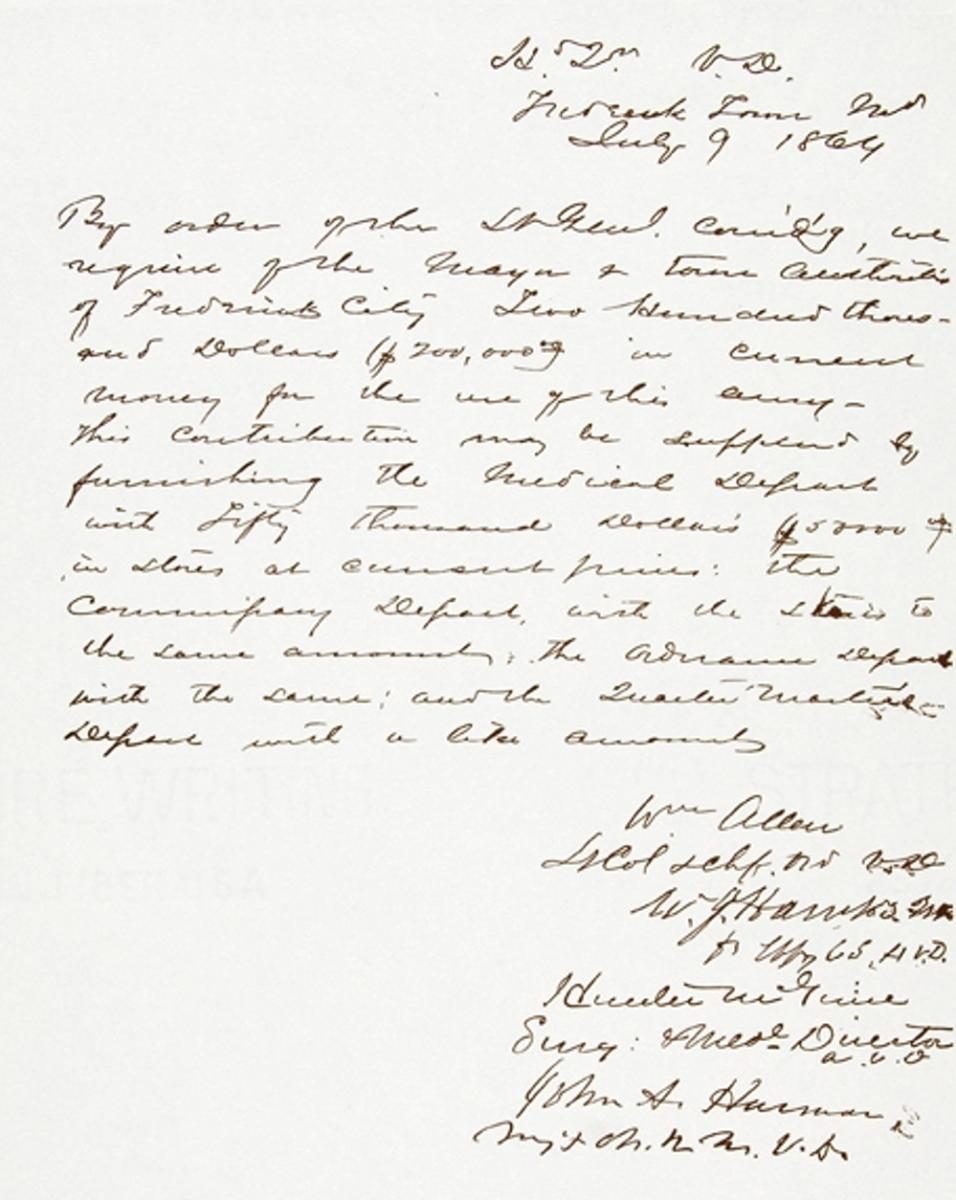 Hd Qrs V. D.
Frederick Town Md
July 9 1864
By order of the Lt Genl. Comd'g, we
require of the Mayor & town authorities
of Frederick City Two Hundred thous-
and Dollars ($200,000) in current
money for the use of this army –
This contribution may be supplied by
furnishing the Medical Depart
with Fifty thousand Dollars ($50000
in stores at current prices: the
Commissary Depart, with the stores to
the same amount; the Ordnance Depart
with the same; and the Quarter Masters
Depart with a like amount
Wm Allan
Lt Col & chf. V. D.
W. J. Hawks
V. D.
Hunter McGuire
Surg: & Medl Director
a. v. d
John A. Harman
Maj & Ch. Q. M. V. D.